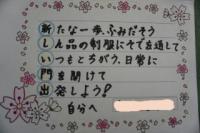 新たな一歩、ふみだそう
しん品の制服にそでを通して
いつもとちがう、日常に
門を開けて
出発しよう!
自分へ